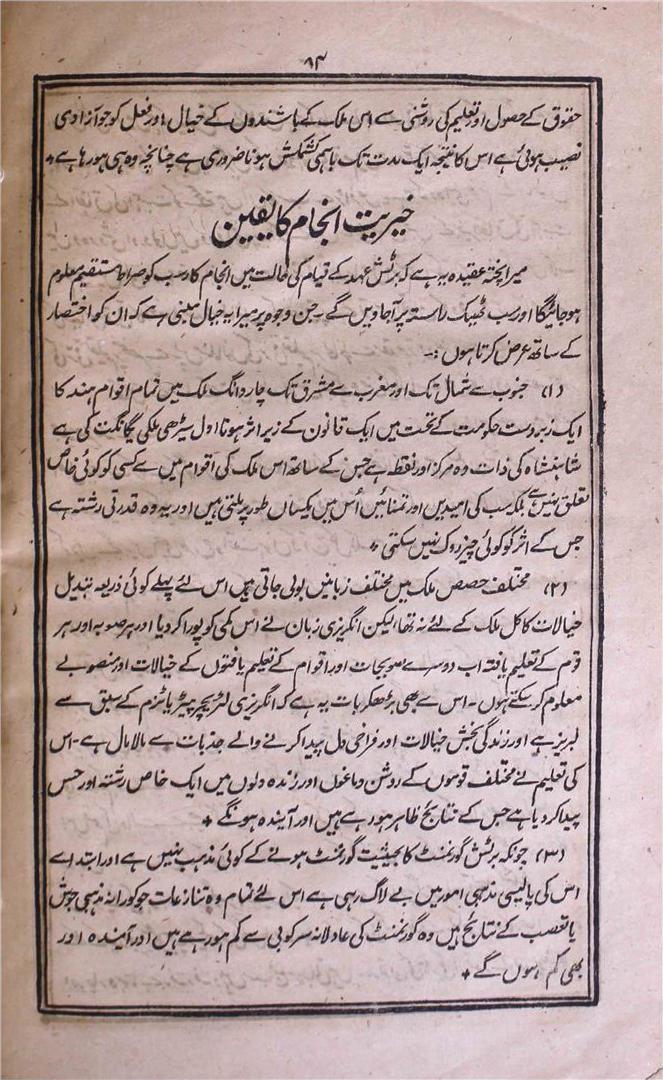 ۸۴
حقوق کے حصول اور تعلیم کی روشنی سے اس ملک کے باشندوں کے خیال اور فعل کو جو آزادی
نصیب ہوئی ہے اس کا نتیجہ ایک مدت تک باہمی کشمکش ہونا ضروری ہے چنانچہ وہ ہی ہو رہا ہے +
خیریت انجام کا یقین
میرا پختہ عقیدہ یہ ہے کہ برٹش عہد کے قیام کی حالت میں انجام کار سب کو صراط مستقیم معلوم
ہو جائیگا اور سب ٹھیک راستہ پر آجاویں گے۔ جن وجوہ پر میرا یہ خیال مبنی ہے کہ ان کو اختصار
کے ساتھ عرض کرتا ہوں :۔
(۱) جنوب سے شمال تک اور مغرب سے مشرق تک چار دانگ ملک میں تمام اقوام ہند کا
ایک زبردست حکومت کے تحت میں ایک قانون کے زیر اثر ہونا اول سیڑھی ملکی یگانگت کی ہے
شاہنشاہ کی ذات وہ مرکز اور نقطہ ہے جس کے ساتھ اس ملک کی اقوام میں سے کسی کو کوئی خاص
تعلق نہیں ہے بلکہ سب کی امیدیں اور تمنائیں اُس میں یکساں طور پر ملتی ہیں اور یہ وہ قدرتی رشتہ ہے
جس کے اثر کو کوئی چیز روک نہیں سکتی +
(۲) مختلف حصص ملک میں مختلف زبانیں بولی جاتی ہیں اس لئے پہلے کوئی ذریعہ تبدیل
خیالات کا کل ملک کے لئے نہ تھا، لیکن انگریزی زبان نے اس کمی کو پورا کر دیا اور ہر صوبہ اور ہر
قوم کے تعلیم یافتہ اب دوسرے صوبجات اور اقوام کے تعلیم یافتوں کے خیالات اور منصوبے
معلوم کر سکتے ہیں۔ اس سے بھی بڑھکر بات یہ ہے کہ انگریزی لٹریچر پیٹریاٹزم کے سبق سے
لبریز ہے اور زندگی بخش خیالات اور فراخی دل پیدا کرنے والے جذبات سے مالا مال ہے۔ اس
کی تعلیم نے مختلف قوموں کے روشن دماغوں اور زندہ دلوں میں ایک خاص رشتہ اور حس
پیدا کر دیا ہے جس کے نتائج ظاہر ہو رہے ہیں اور آیندہ ہونگے +
(۳) چونکہ برٹش گورنمنٹ کا بحیثیت گورنمنٹ ہونے کے کوئی مذہب نہیں ہے اور ابتدا سے
اس کی پالیسی مذہبی امور میں بے لاگ رہی ہے اس لئے تمام وہ تنازعات جو کورانہ مذہبی جوش
یا تعصب کے نتائج ہیں وہ گورنمنٹ کی عادلانہ سرکوبی سے کم ہو رہے ہیں اور آیندہ اور
بھی کم ہوں گے +